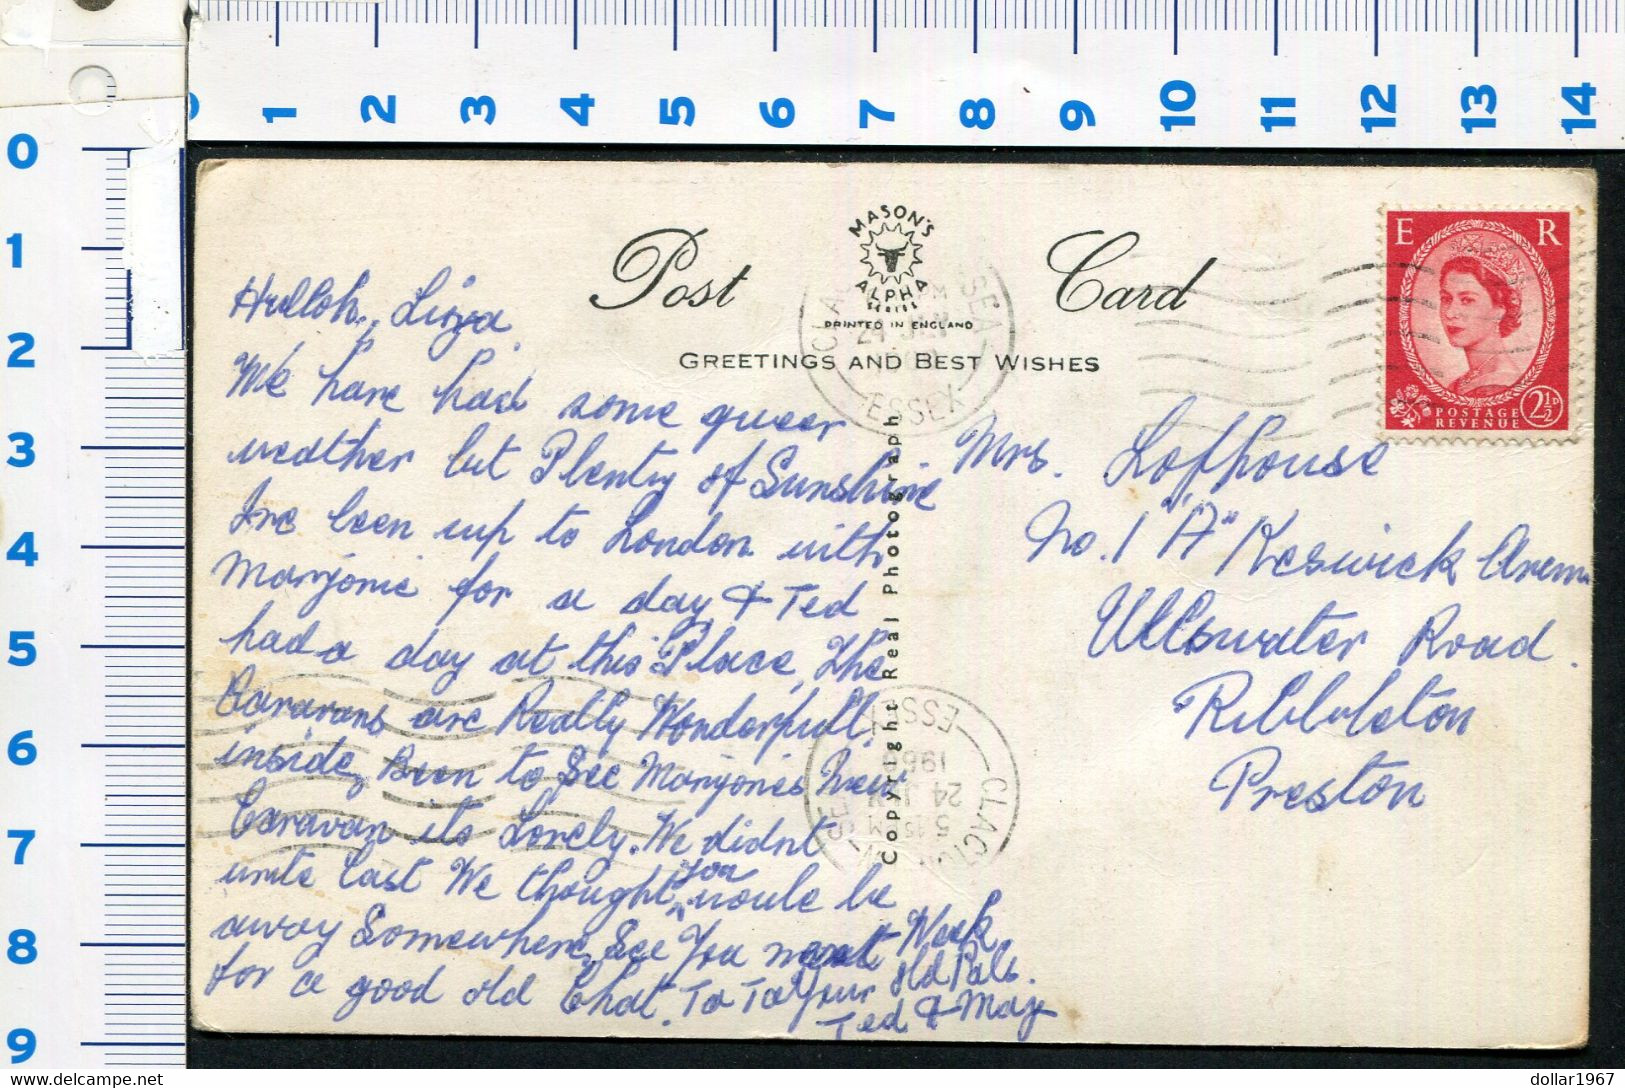 0 1 2 3 4 5 6 7 8 9 10 11 12 13 14
0
1
2
3
4
5
6
7
8
9
Post Card
MASON'S
ALPHA
SERIES
PRINTED IN ENGLAND
GREETINGS AND BEST WISHES
Copyright Real Photograph
E R
POSTAGE
REVENUE
2½D
ESSEX
CLACTON
5 15 PM
24 JAN
196
ESSEX
Hulloh, Linja.
We have had some queer
weather but Plenty of Sunshine
Ive been up to London with
Marjorie for a day & Ted
had a day at this Place, The
Caravans are Really Wonderfull
inside, Been to See Marjories New
Caravan its Lovely. We didnt
write Cast We thought you would be
away Somewhere, See You next Week
for a good old Chat. Ta Ta Your old Pals.
Ted & May
Mrs. Lofthouse
No. 1 "A" Keswick Avenu
Ullswater Road.
Ribbleton
Preston
dollar1967